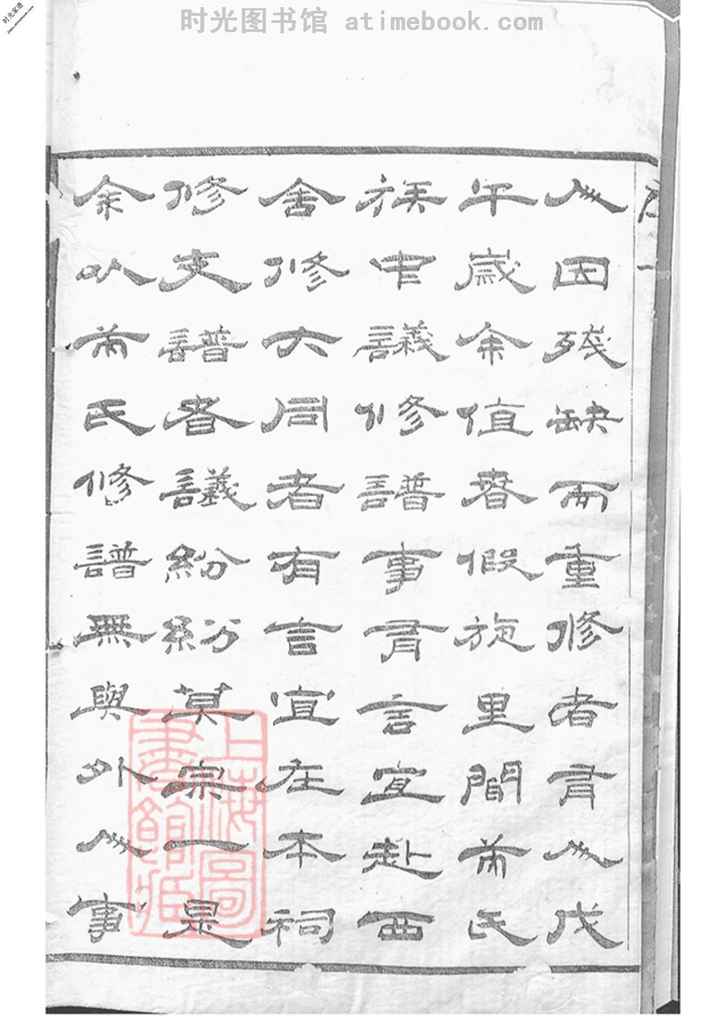 时光图书馆 atimebook.com
人因殘缺而重修者有人戊
午歲余值春假旋里間芮氏
族中議修譜事有言宜赴西
舍修大同者有言宜在本祠
修支譜者議紛紛莫宗一是
余以芮氏修譜無與外人事
上海圖書館藏